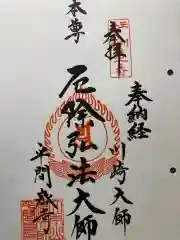 奉拝
奉納経
川崎大師
本尊
厄除弘法大師
平間寺